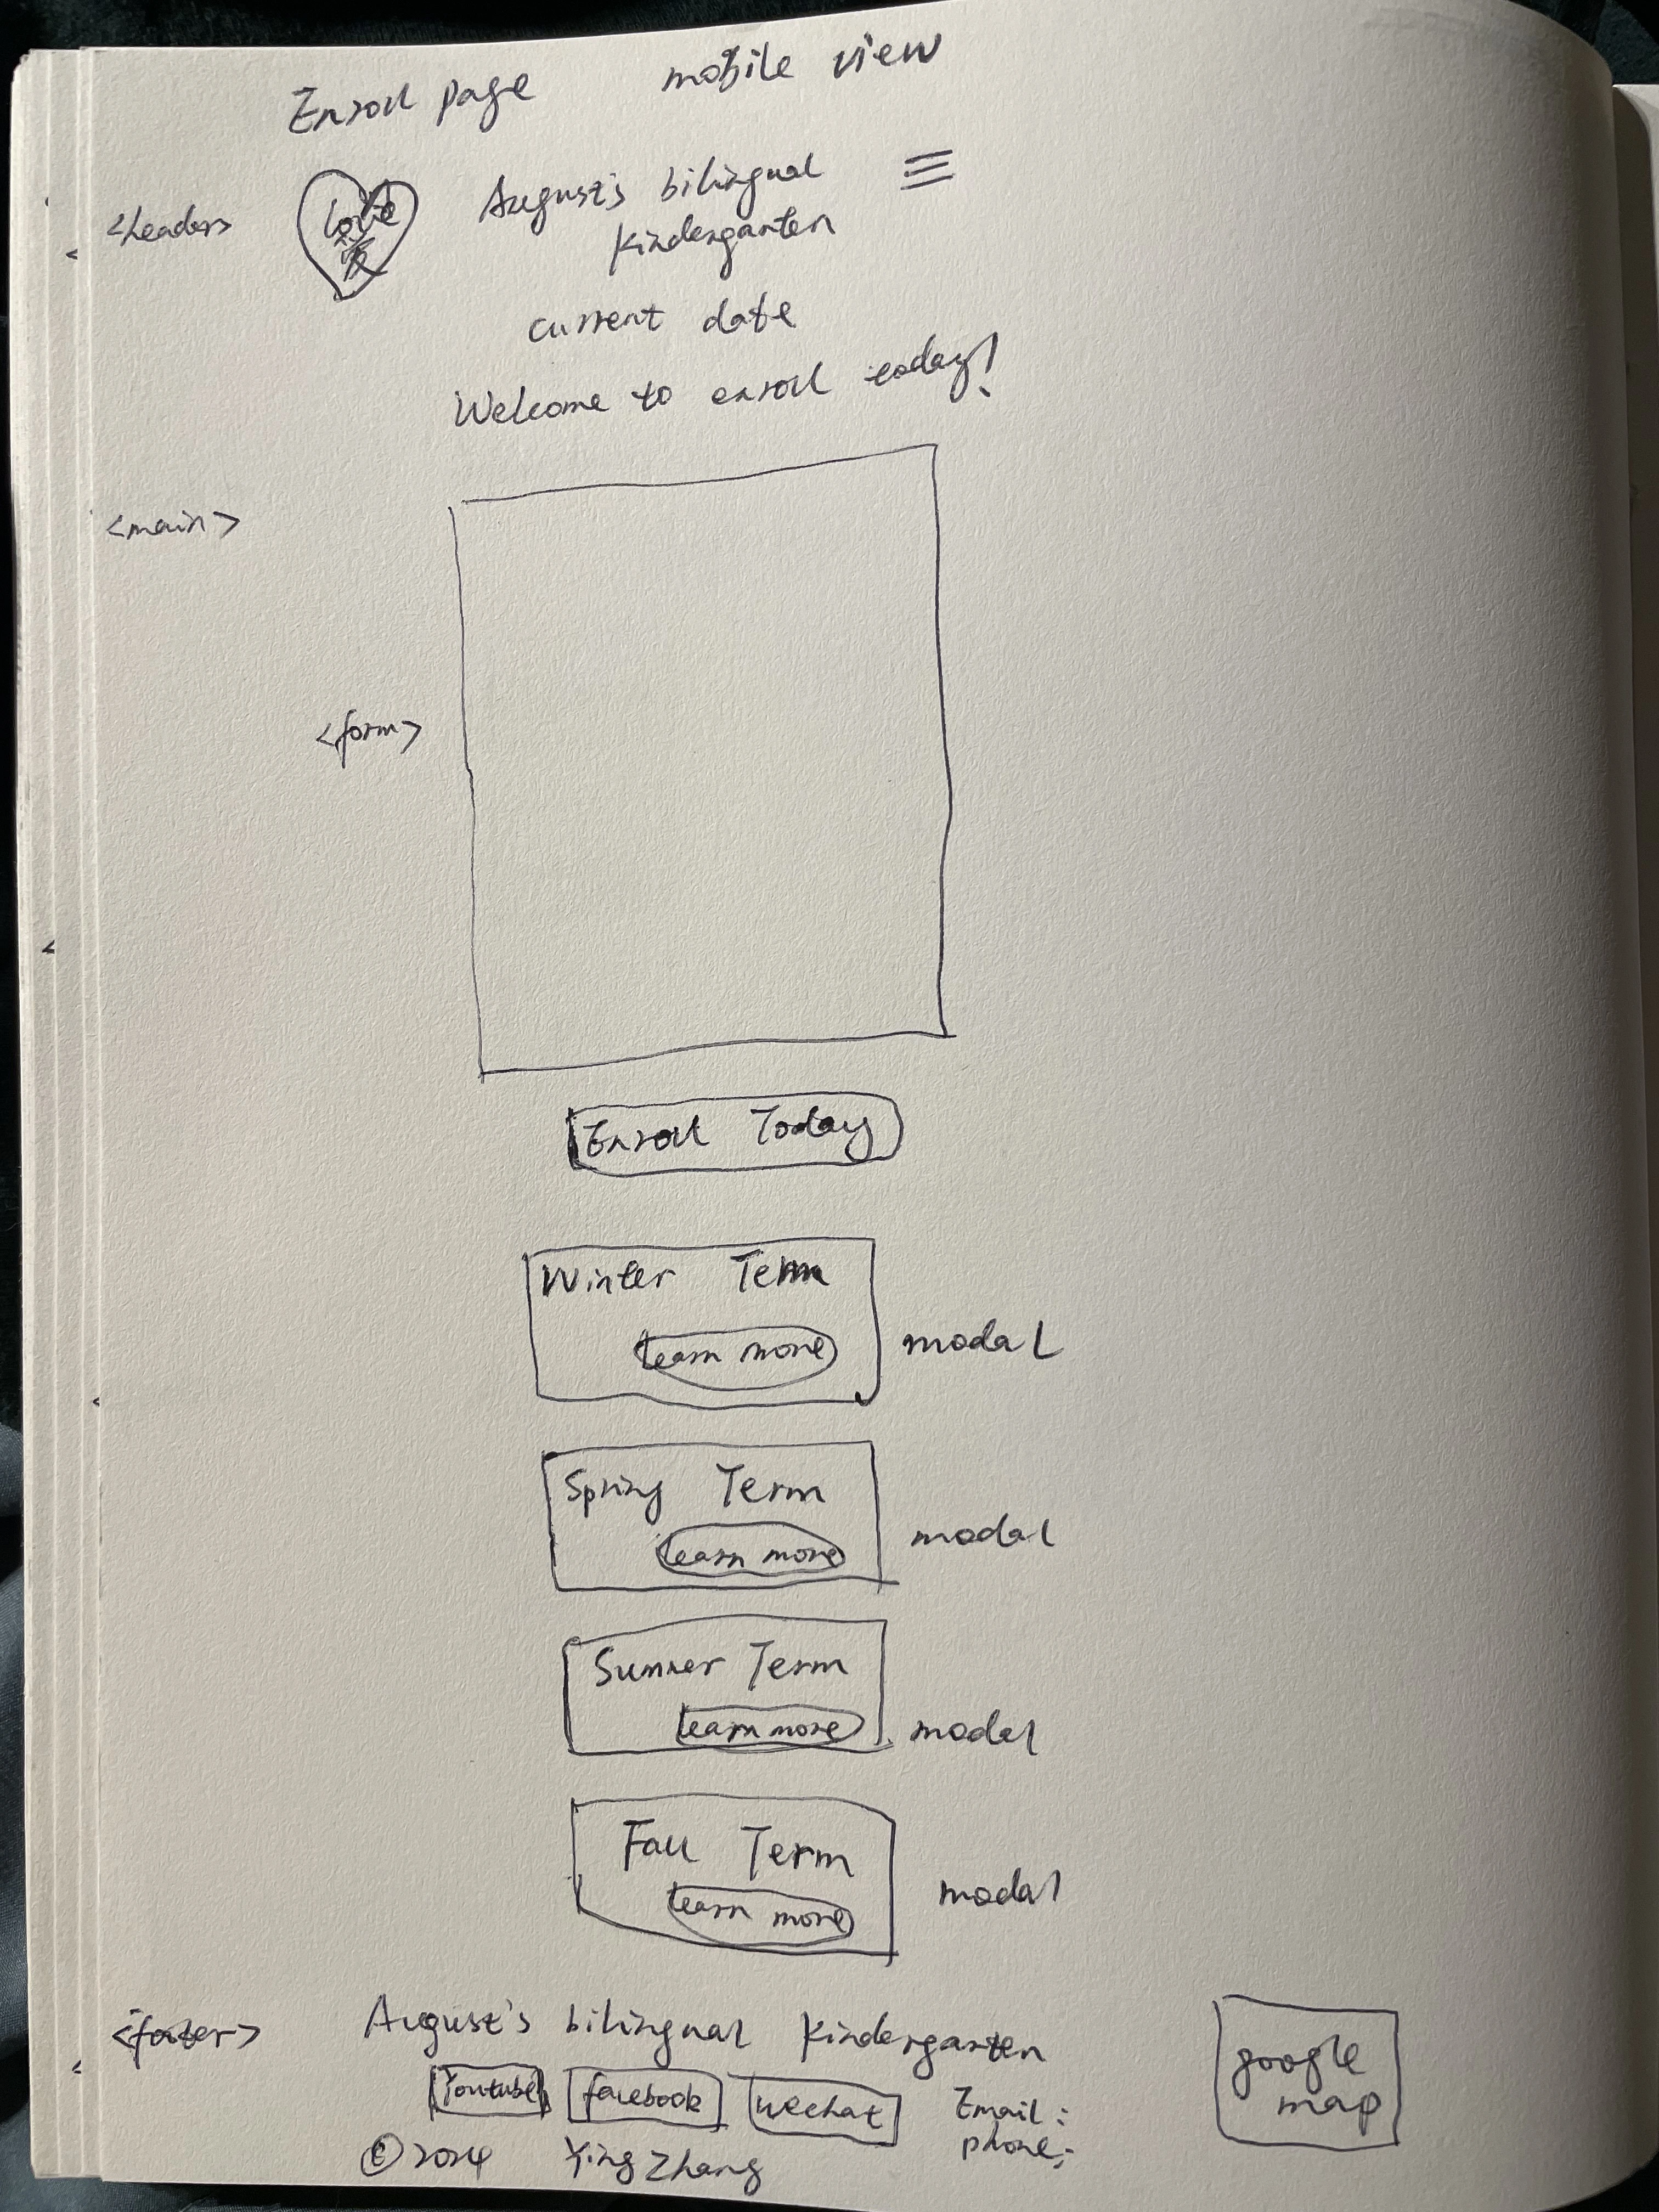 Enroll page mobile view
<header>
love
爱
August's bilingual
kindergarten
current date
Welcome to enroll today!
<main>
<form>
Enroll Today
Winter Term
learn more
modal
Spring Term
learn more
modal
Summer Term
learn more
modal
Fall Term
learn more
modal
<footer>
August's bilingual kindergarten
google
map
Youtube facebook wechat Email:
phone:
©2024 Ying Zhang